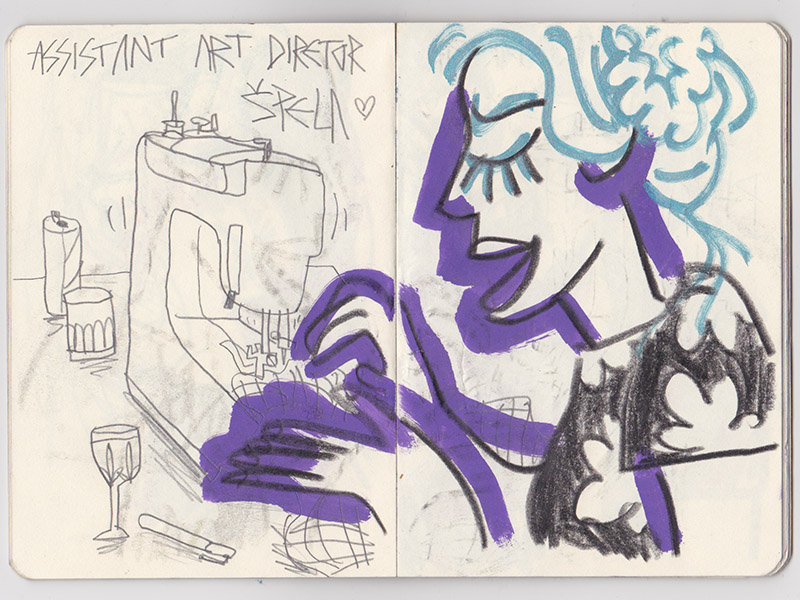 ASSISTANT ART DIRETOR
ŠPELA ♡